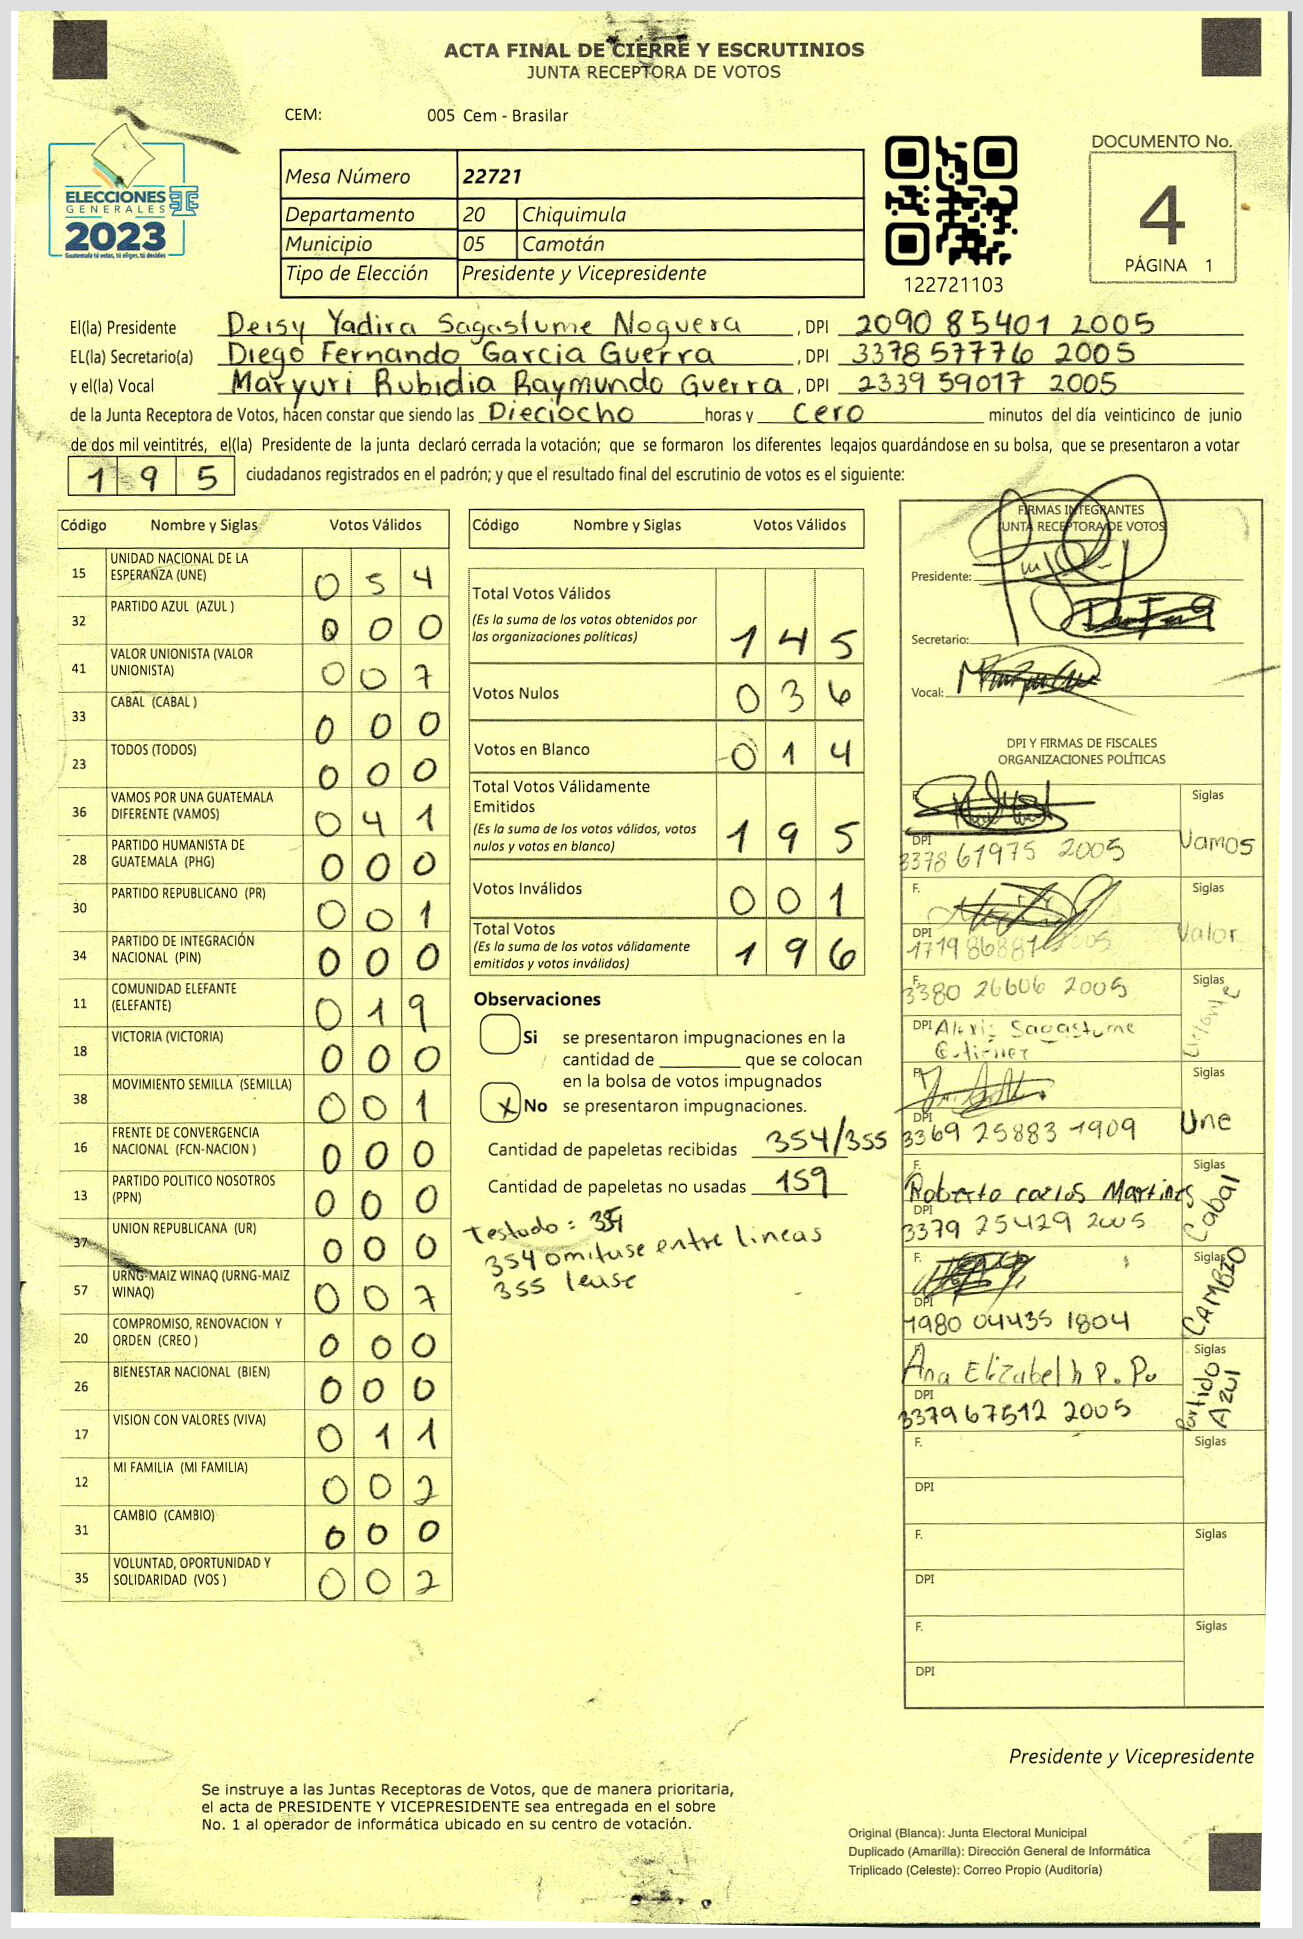 ACTA FINAL DE CIERRE Y ESCRUTINIOS
JUNTA RECEPTORA DE VOTOS
CEM: 005 Cem - Brasilar
ELECCIONES
GENERALES
2023
Guatemala tú votas, tú eliges, tú decides
Mesa Número 22721
Departamento 20 Chiquimula
Municipio 05 Camotán
Tipo de Elección Presidente y Vicepresidente
122721103
DOCUMENTO No.
4
PÁGINA 1
El(la) Presidente Deisy Yadira Sagastume Noguera , DPI 2090 85401 2005
EL(la) Secretario(a) Diego Fernando Garcia Guerra , DPI 3378 57776 2005
y el(la) Vocal Maryuri Rubidia Raymundo Guerra , DPI 2339 59017 2005
de la Junta Receptora de Votos, hacen constar que siendo las Dieciocho horas y cero minutos del día veinticinco de junio
de dos mil veintitrés, el(la) Presidente de la junta declaró cerrada la votación; que se formaron los diferentes legajos guardándose en su bolsa, que se presentaron a votar
195 ciudadanos registrados en el padrón; y que el resultado final del escrutinio de votos es el siguiente:
Código Nombre y Siglas Votos Válidos
15 UNIDAD NACIONAL DE LA ESPERANZA (UNE) 054
32 PARTIDO AZUL (AZUL ) 000
41 VALOR UNIONISTA (VALOR UNIONISTA) 007
33 CABAL (CABAL ) 000
23 TODOS (TODOS) 000
36 VAMOS POR UNA GUATEMALA DIFERENTE (VAMOS) 041
28 PARTIDO HUMANISTA DE GUATEMALA (PHG) 000
30 PARTIDO REPUBLICANO (PR) 001
34 PARTIDO DE INTEGRACIÓN NACIONAL (PIN) 000
11 COMUNIDAD ELEFANTE (ELEFANTE) 019
18 VICTORIA (VICTORIA) 000
38 MOVIMIENTO SEMILLA (SEMILLA) 001
16 FRENTE DE CONVERGENCIA NACIONAL (FCN-NACION ) 000
13 PARTIDO POLITICO NOSOTROS (PPN) 000
37 UNION REPUBLICANA (UR) 000
57 URNG-MAIZ WINAQ (URNG-MAIZ WINAQ) 007
20 COMPROMISO, RENOVACION Y ORDEN (CREO ) 000
26 BIENESTAR NACIONAL (BIEN) 000
17 VISION CON VALORES (VIVA) 011
12 MI FAMILIA (MI FAMILIA) 002
31 CAMBIO (CAMBIO) 000
35 VOLUNTAD, OPORTUNIDAD Y SOLIDARIDAD (VOS ) 002
Código Nombre y Siglas Votos Válidos
Total Votos Válidos
(Es la suma de los votos obtenidos por
las organizaciones políticas) 145
Votos Nulos 036
Votos en Blanco 014
Total Votos Válidamente
Emitidos
(Es la suma de los votos válidos, votos
nulos y votos en blanco) 195
Votos Inválidos 001
Total Votos
(Es la suma de los votos válidamente
emitidos y votos inválidos) 196
Observaciones
Si se presentaron impugnaciones en la
cantidad de ________ que se colocan
en la bolsa de votos impugnados
X No se presentaron impugnaciones.
Cantidad de papeletas recibidas 354/355
Cantidad de papeletas no usadas 159
Testado: 354
354 omitase entre lineas
355 lease
FIRMAS INTEGRANTES
JUNTA RECEPTORA DE VOTOS
Presidente:
Secretario:
Vocal:
DPI Y FIRMAS DE FISCALES
ORGANIZACIONES POLÍTICAS
F. Siglas
DPI 3378 61975 2005 Vamos
F. Siglas
DPI 1719 86887 2005 Valor
F. 3380 26606 2005 Siglas
DPI Alexis Sagastume
F. Siglas
DPI 3369 25883 1909 Une
F. Roberto carlos Martines Siglas
DPI 3379 25429 2005 Cabal
F. Siglas
DPI 1980 04435 1804 CAMBIO
Ana Elizabeth P. Siglas
DPI 3379 67512 2005 Partido Azul
F. Siglas
DPI
F. Siglas
DPI
F. Siglas
DPI
Presidente y Vicepresidente
Se instruye a las Juntas Receptoras de Votos, que de manera prioritaria,
el acta de PRESIDENTE Y VICEPRESIDENTE sea entregada en el sobre
No. 1 al operador de informática ubicado en su centro de votación.
Original (Blanca): Junta Electoral Municipal
Duplicado (Amarilla): Dirección General de Informática
Triplicado (Celeste): Correo Propio (Auditoría)